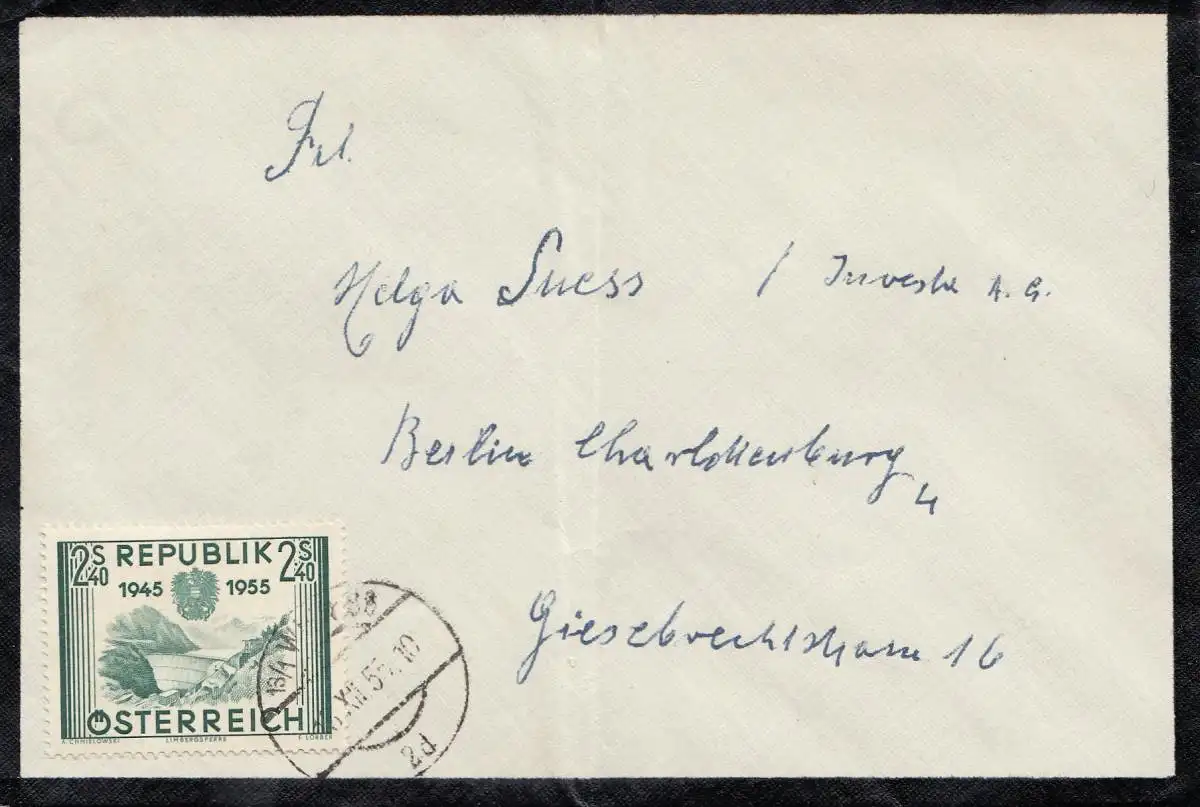 Frl.
Helga Suess / Investa A.G.
Berlin Charlottenburg 4
Giesebrechtstrasse 16
2S40 REPUBLIK 2S40
1945 1955
ÖSTERREICH
A. CHMIELOWSKI LIMBERGSPERRE F. LORBER
WIEN
XII.55.10
2d